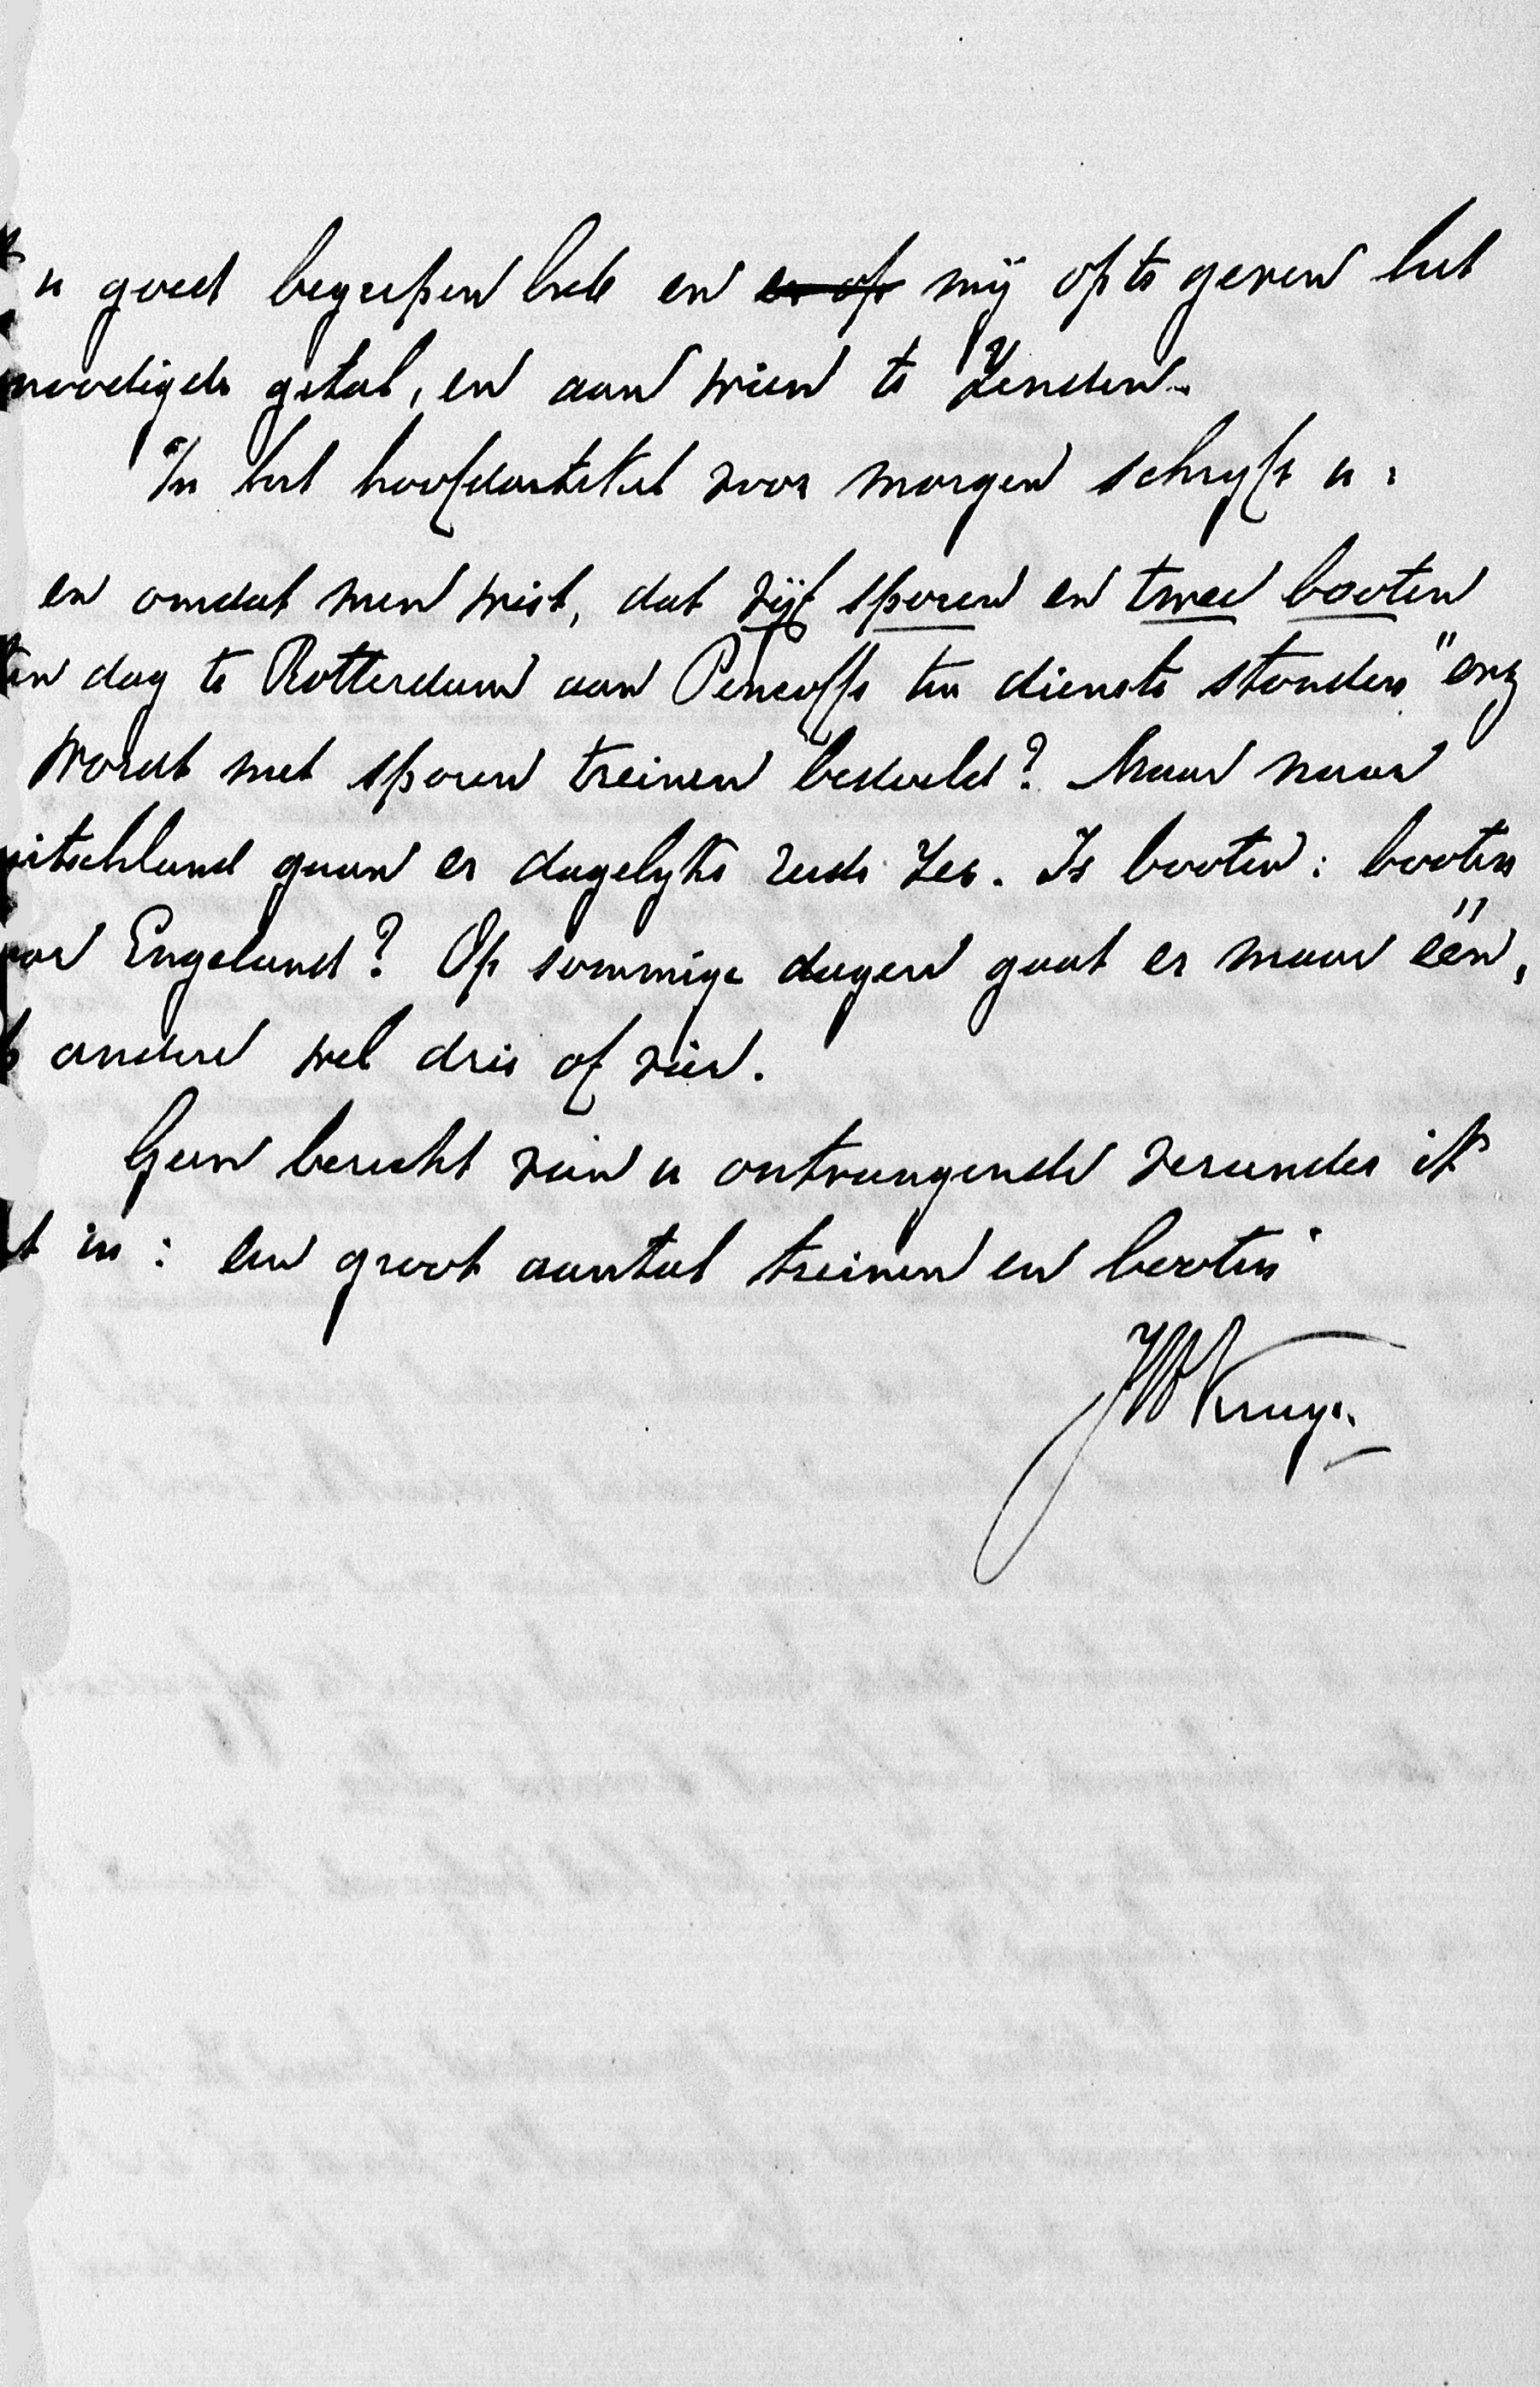 u goed begrepen heb en er op mij op te geven het
noodigde getal, en aan wien te zenden.
In het hoofdartikel voor morgen schrijft u:
en omdat men wist, dat vijf sporen en twee booten
dag te Rotterdam aan Pincoffs ten dienste stonden" enz
Wordt met sporen treinen bedoeld? Maar naar
uitschland gaan er dagelyks reeds zes. Is booten: booten
Engeland? Op sommige dagen gaat er maar één,
andere wel drie of vier.
Geen bericht van u ontvangende verander ik
t in: een groot aantal treinen en booten